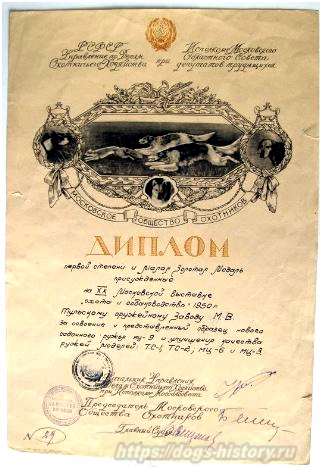 РСФСР
Управление по Делам
Охотничьего Хозяйства
при
Исполком Московского
Областного Совета
депутатов трудящихся
МОСКОВСКОЕ ОБЩЕСТВО ОХОТНИКОВ
ДИПЛОМ
первой степени и малая Золотая Медаль
присужденный
на XX Московской выставке
"охота и собаководство" 1950 г.
Тульскому оружейному Заводу М.В.
за освоение и представленный образец нового
садочного ружья
и улучшение качества
ружей моделей:
Управления
Охотничьего Хозяйства
при Исполкоме Мособлсовета
Председатель Московского
Общества Охотников
Главный Судья
N 29
https://dogs-history.ru